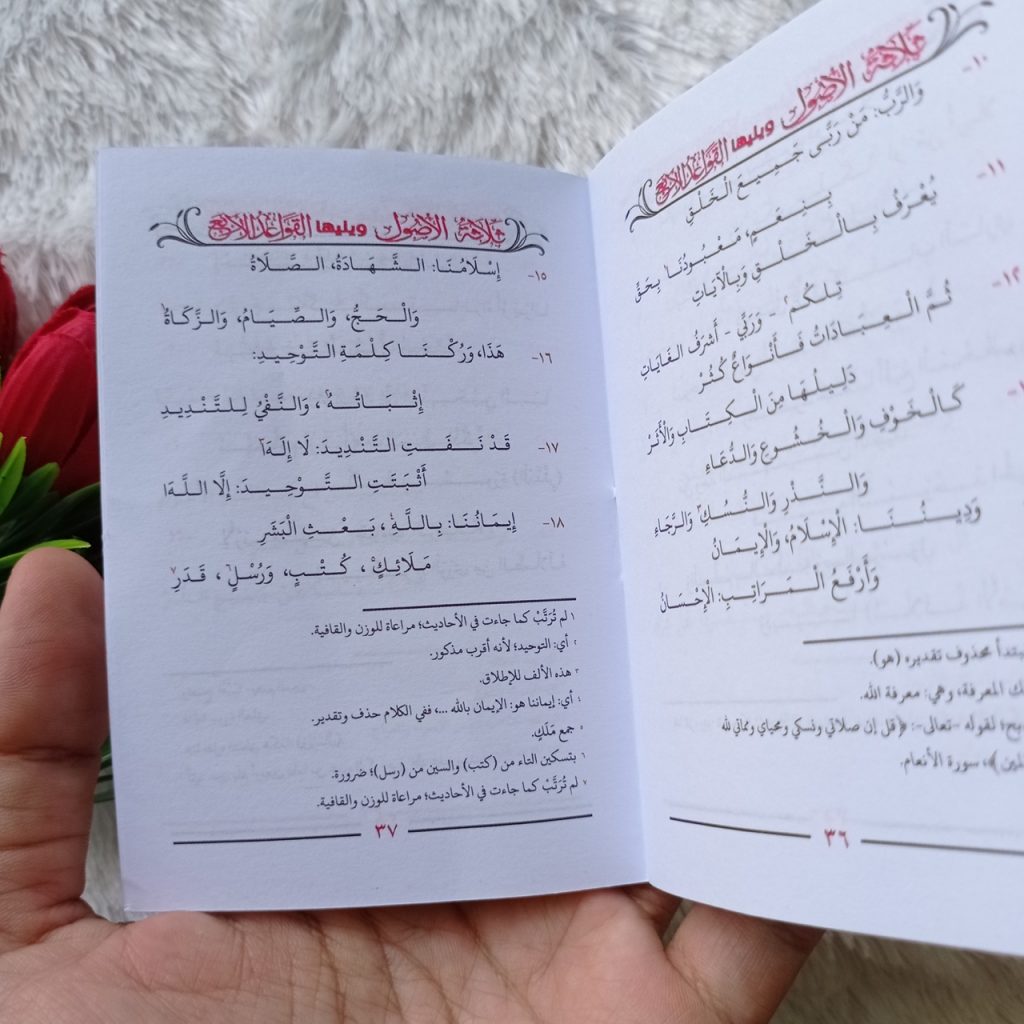 ثلاثة الأصول ويليها القواعد الأربع
١٠- وَالرَّبُّ: مَنْ رَبَّى جَمِيعَ الْخَلْقِ
بِنِعَمٍ، مَعْبُودُنَا بِحَقِّ
١١- يُعْرَفُ بِالْخَلْقِ وَبِالْآيَاتِ
تِلْكُمْ - وَرَبِّي - أَشْرَفُ الْغَايَاتِ
١٢- ثُمَّ الْعِبَادَاتُ فَأَنْوَاعٌ كُثُرْ
دَلِيلُهَا مِنَ الْكِتَابِ وَالْأَثَرْ
كَالْخَوْفِ وَالْخُشُوعِ وَالدُّعَاءِ
وَالنَّذْرِ وَالنُّسُكِ وَالرَّجَاءِ
وَدِينُنَا: الْإِسْلَامُ، وَالْإِيمَانُ
وَأَرْفَعُ الْمَرَاتِبِ: الْإِحْسَانُ
محذوف تقديره (هو).
المعرفة، وهي: معرفة الله.
لقوله -تعالى-: ﴿قل إن صلاتي ونسكي ومحياي ومماتي لله
سورة الأنعام.
٣٦
ثلاثة الأصول ويليها القواعد الأربع
١٥- إِسْلَامُنَا: الشَّهَادَةُ، الصَّلَاةُ
وَالْحَجُّ، وَالصِّيَامُ، وَالزَّكَاةُ١
١٦- هَذَا، وَرُكْنَا كِلْمَةِ التَّوْحِيدِ:
إِثْبَاتُهُ٢، وَالنَّفْيُ لِلتَّنْدِيدِ
١٧- قَدْ نَفَتِ التَّنْدِيدَ: لَا إِلَهَا٣
أَثْبَتَتِ التَّوْحِيدَ: إِلَّا اللَّهَا
١٨- إِيمَانُنَا: بِاللَّهِ٤، بَعْثِ الْبَشَرِ
مَلَائِكٍ٥، كُتْبٍ، وَرُسْلٍ٦، قَدَرِ٧
١ لم تُرَتَّبْ كما جاءت في الأحاديث؛ مراعاة للوزن والقافية.
٢ أي: التوحيد؛ لأنه أقرب مذكور.
٣ هذه الألف للإطلاق.
٤ أي: إيماننا هو: الإيمان بالله ...، ففي الكلام حذف وتقدير.
٥ جمع مَلَكٍ.
٦ بتسكين التاء من (كتب) والسين من (رسل)؛ ضرورة.
٧ لم تُرَتَّبْ كما جاءت في الأحاديث؛ مراعاة للوزن والقافية.
٣٧